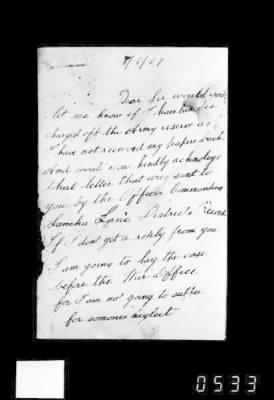 7/6/07
Dear Sir would you
let we know if I have been dis
charged off the Army reserve as
I have not received my papers back
And would you kindly acknoledge
that letter that was sent to
you by the Officer Commanding
Lancha Lane Districts Record
If I don't get a reply from you
I am going to lay the case
before the War Office
for I am not going to suffer
for somones neglect
0533